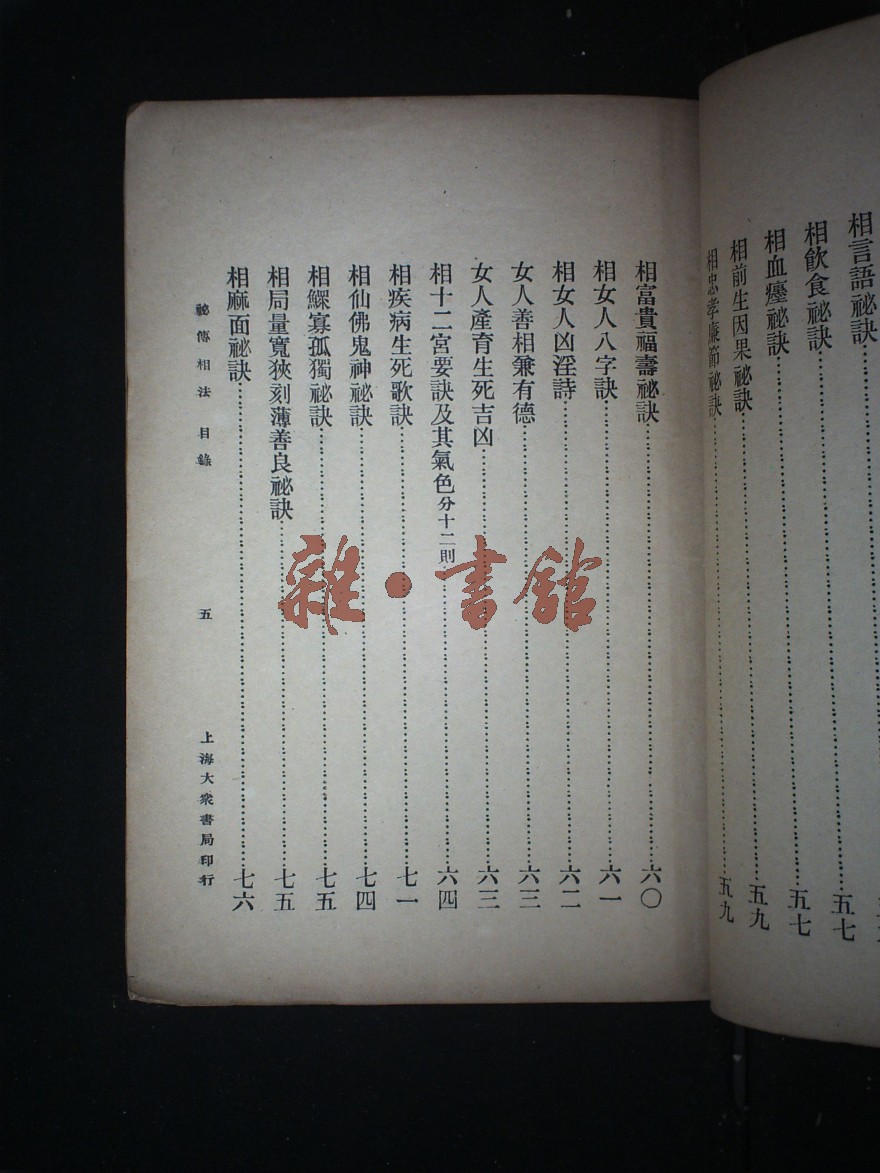 相言語祕訣
相飲食祕訣……五七
相血癦祕訣……五七
相前生因果祕訣……五九
相忠孝廉節祕訣……五九
相富貴福壽祕訣……六〇
相女人八字訣……六一
相女人凶淫詩……六二
女人善相兼有德……六三
女人產育生死吉凶……六三
相十二宮要訣及其氣色分十二則……六四
相疾病生死歌訣……七一
相仙佛鬼神祕訣……七四
相鰥寡孤獨祕訣……七五
相局量寬狹刻薄善良祕訣……七五
相麻面祕訣……七六
祕傳相法 目錄 五 上海大衆書局印行
雜·書館